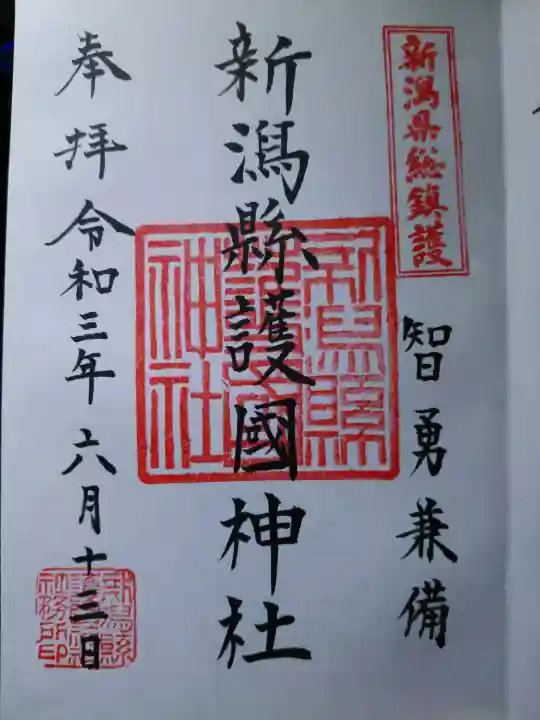 新潟県総鎮護
智勇兼備
新潟縣護國神社
新潟縣護國神社
奉拝 令和三年 六月十三日
新潟縣護國神社社務所印